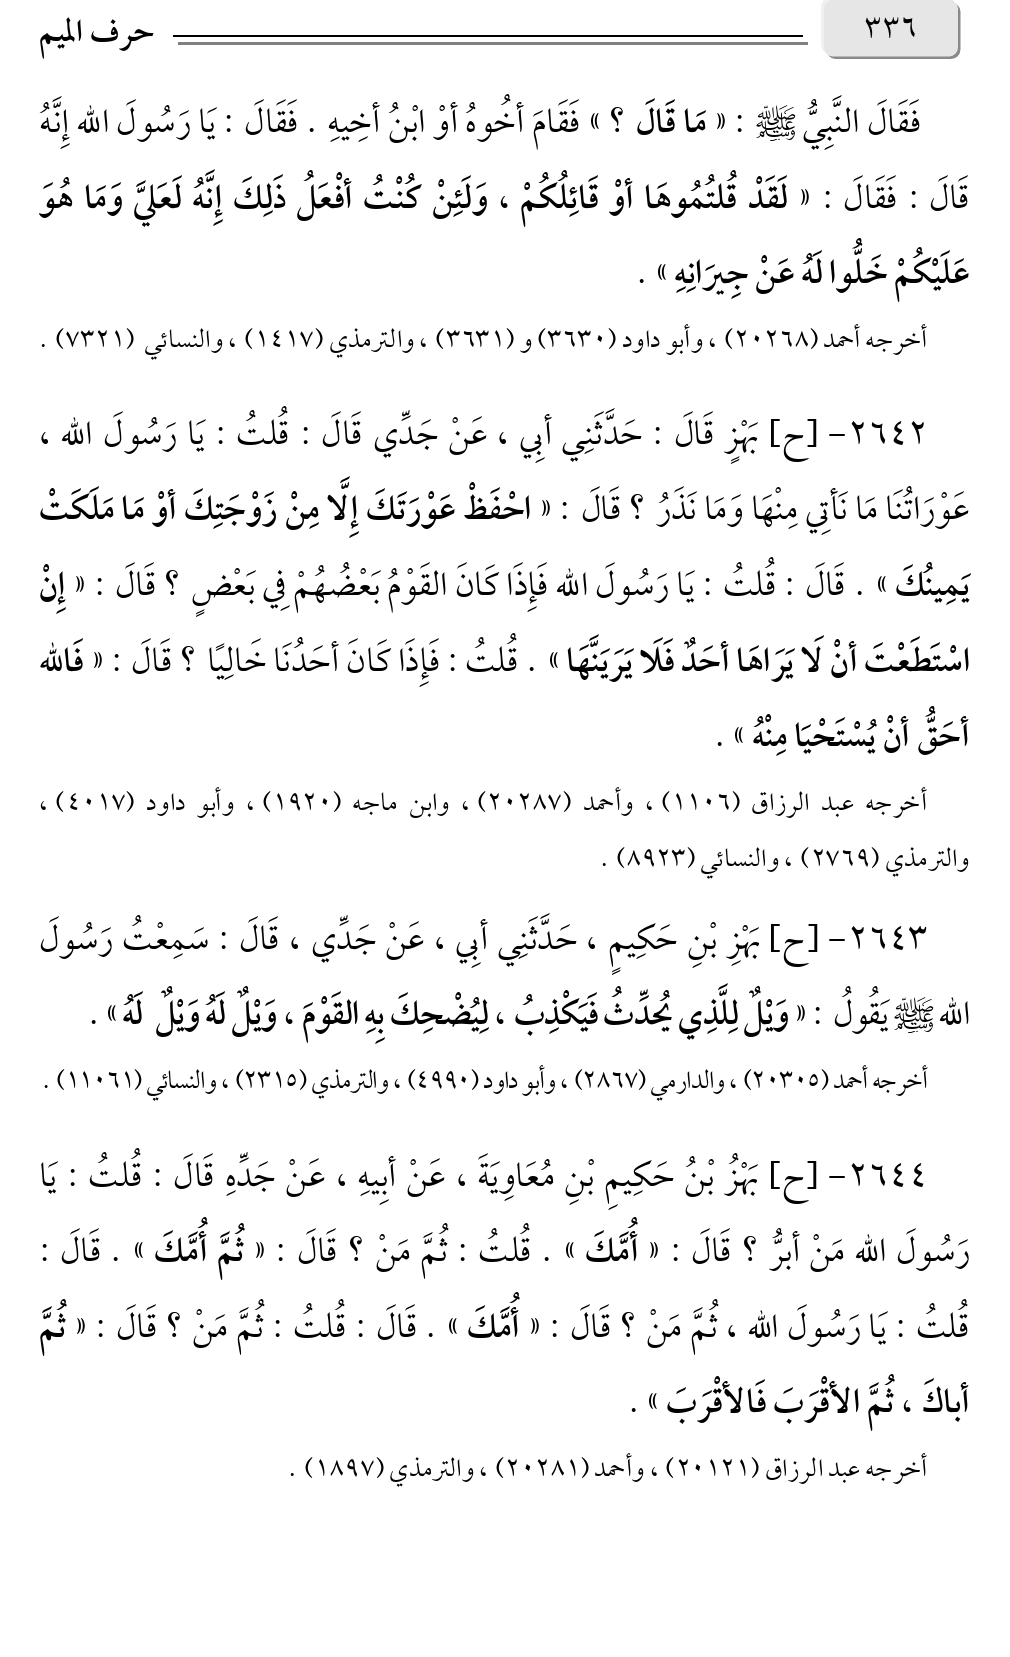 ٣٣٦ حرف الميم
فَقَالَ النَّبِيُّ ﷺ : « مَا قَالَ ؟ » فَقَامَ أخُوهُ أوْ ابْنُ أخِيهِ . فَقَالَ : يَا رَسُولَ الله إِنَّهُ
قَالَ : فَقَالَ : « لَقَدْ قُلتُمُوهَا أوْ قَائِلُكُمْ ، وَلَئِنْ كُنْتُ أفْعَلُ ذَلِكَ إِنَّهُ لَعَلَيَّ وَمَا هُوَ
عَلَيْكُمْ خَلُّوا لَهُ عَنْ جِيرَانِهِ » .
أخرجه أحمد (٢٠٢٦٨) ، وأبو داود (٣٦٣٠) و (٣٦٣١) ، والترمذي (١٤١٧) ، والنسائي (٧٣٢١) .
٢٦٤٢- [ح] بَهْزٍ قَالَ : حَدَّثَنِي أبِي ، عَنْ جَدِّي قَالَ : قُلتُ : يَا رَسُولَ الله ،
عَوْرَاتُنَا مَا نَأتِي مِنْهَا وَمَا نَذَرُ ؟ قَالَ : « احْفَظْ عَوْرَتَكَ إِلَّا مِنْ زَوْجَتِكَ أوْ مَا مَلَكَتْ
يَمِينُكَ » . قَالَ : قُلتُ : يَا رَسُولَ الله فَإِذَا كَانَ القَوْمُ بَعْضُهُمْ فِي بَعْضٍ ؟ قَالَ : « إِنْ
اسْتَطَعْتَ أنْ لَا يَرَاهَا أحَدٌ فَلَا يَرَيَنَّهَا » . قُلتُ : فَإِذَا كَانَ أحَدُنَا خَالِيًا ؟ قَالَ : « فَالله
أحَقُّ أنْ يُسْتَحْيَا مِنْهُ » .
أخرجه عبد الرزاق (١١٠٦) ، وأحمد (٢٠٢٨٧) ، وابن ماجه (١٩٢٠) ، وأبو داود (٤٠١٧) ،
والترمذي (٢٧٦٩) ، والنسائي (٨٩٢٣) .
٢٦٤٣- [ح] بَهْزِ بْنِ حَكِيمٍ ، حَدَّثَنِي أبِي ، عَنْ جَدِّي ، قَالَ : سَمِعْتُ رَسُولَ
الله ﷺ يَقُولُ : « وَيْلٌ لِلَّذِي يُحَدِّثُ فَيَكْذِبُ ، لِيُضْحِكَ بِهِ القَوْمَ ، وَيْلٌ لَهُ وَيْلٌ لَهُ » .
أخرجه أحمد (٢٠٣٠٥) ، والدارمي (٢٨٦٧) ، وأبو داود (٤٩٩٠) ، والترمذي (٢٣١٥) ، والنسائي (١١٠٦١) .
٢٦٤٤- [ح] بَهْزُ بْنُ حَكِيمِ بْنِ مُعَاوِيَةَ ، عَنْ أبِيهِ ، عَنْ جَدِّهِ قَالَ : قُلتُ : يَا
رَسُولَ الله مَنْ أبرُّ ؟ قَالَ : « أُمَّكَ » . قُلتُ : ثُمَّ مَنْ ؟ قَالَ : « ثُمَّ أُمَّكَ » . قَالَ :
قُلتُ : يَا رَسُولَ الله ، ثُمَّ مَنْ ؟ قَالَ : « أُمَّكَ » . قَالَ : قُلتُ : ثُمَّ مَنْ ؟ قَالَ : « ثُمَّ
أباكَ ، ثُمَّ الأقْرَبَ فَالأقْرَبَ » .
أخرجه عبد الرزاق (٢٠١٢١) ، وأحمد (٢٠٢٨١) ، والترمذي (١٨٩٧) .